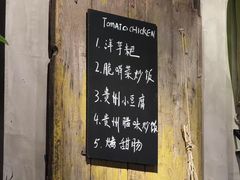 TOMATO CHICKEN
1. 洋芋粑
2. 脆哨菜炒饭
3. 贵州小豆腐
4. 贵州腊味炒饭
5. 烤甜肠